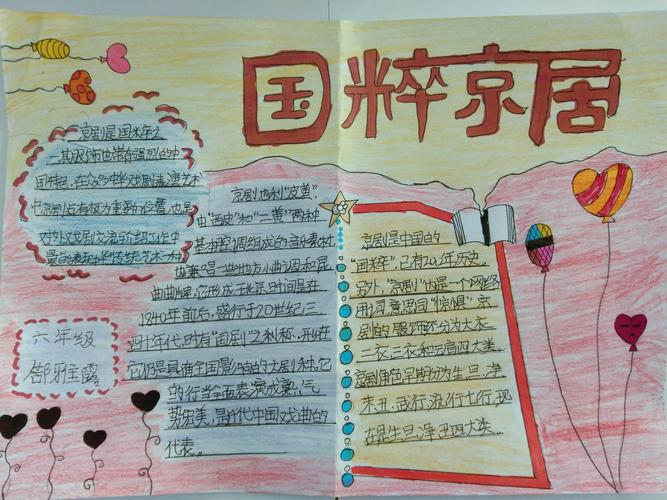 国粹京居
京剧是国粹之
一其服饰也带有强烈的中
国特色,在众多中华戏剧表演艺术
中京剧占有极为重要的位置,也是
对外戏剧交流介绍工作中
六年级
邹雅露
京剧也称"皮黄",
由"西皮"和"二黄"两种
基本腔调组成的音乐素材,
也兼唱一些地方小曲调和昆
曲曲牌,它形成于北京,时间是在
1840年前后,盛行于20世纪三、
四十年代,时有"国剧"之称,
它仍是具有全国影响的大剧种,它
的行当全面、表演成熟、气
势宏美,是近代中国戏曲的
代表。
京剧是中国的
"国粹",已有200年历史。
另外,"京剧"也是一个网络
用词,意思同"惊惧"京
剧的服饰可分为大衣、
三衣、云肩四大类。
京剧角色早期分为生、旦、净、
末、丑、武行、流行七行,现
在是生、旦、净、丑四大类。